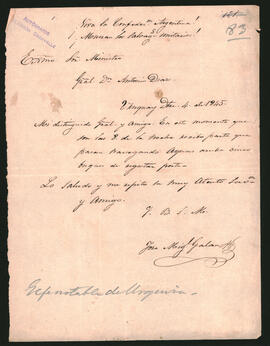 ¡Viva la Confedon Argentina!
¡Mueran los salvages Unitarios!
83
Exmo Sor Ministro
Gral Dn Antonio Diaz
Uruguay Dbre 4 de 1845
Mi distinguido Gral y Amigo En este momento que
son las 8 de la noche recibo parte que
pasan navegando Aguas arriba cinco
buques de
Lo Saludo y me repito su muy Atento Servor
y Amigo.
J. B. S. M.
Jose Migl Galan